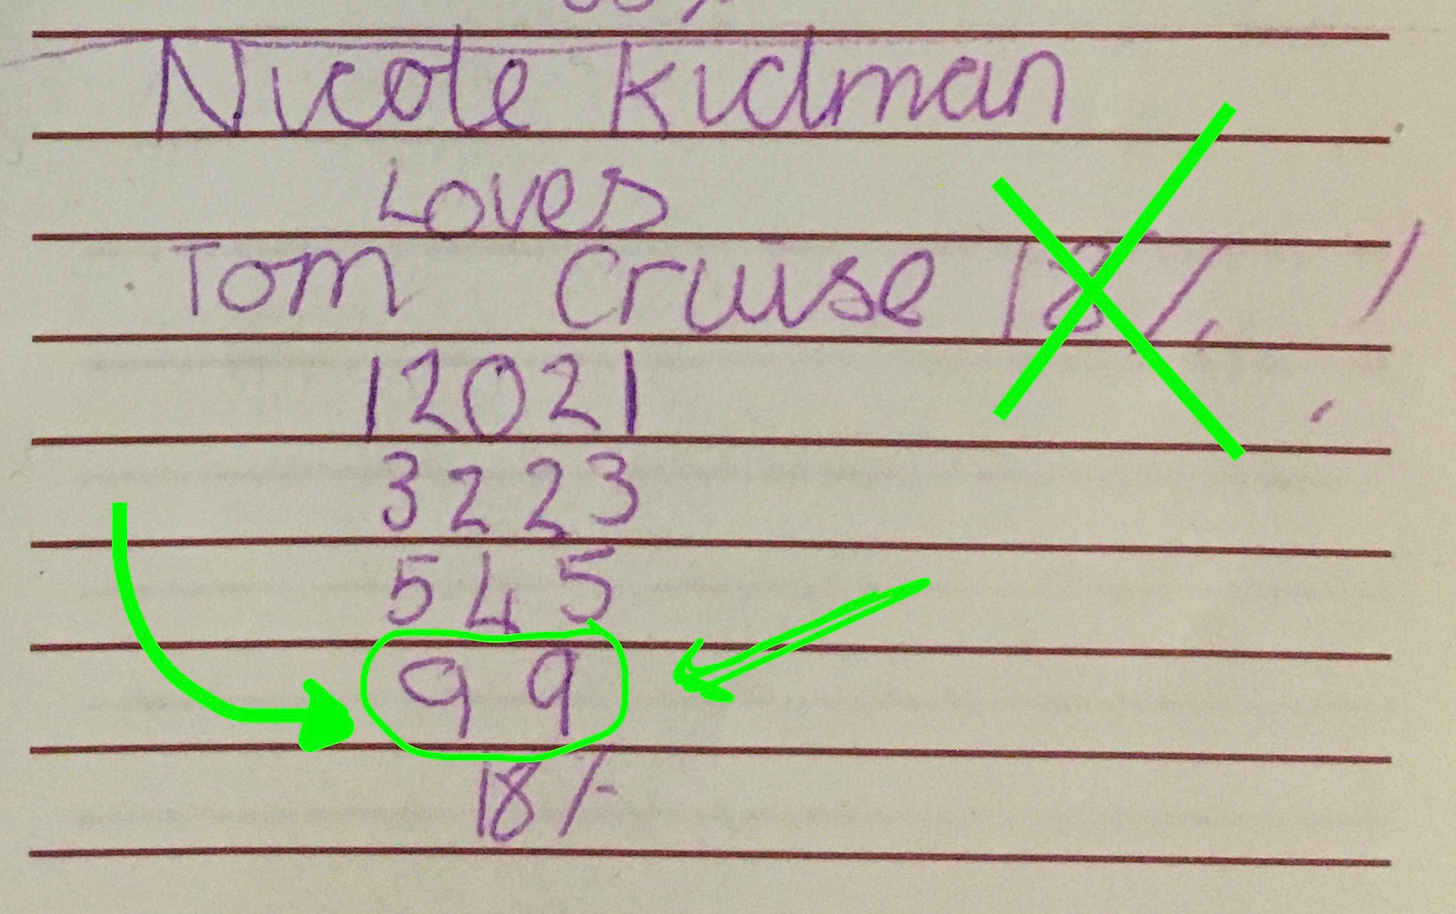 Nicole Kidman
Loves
Tom Cruise 18% !
12021
3223
545
99
18%